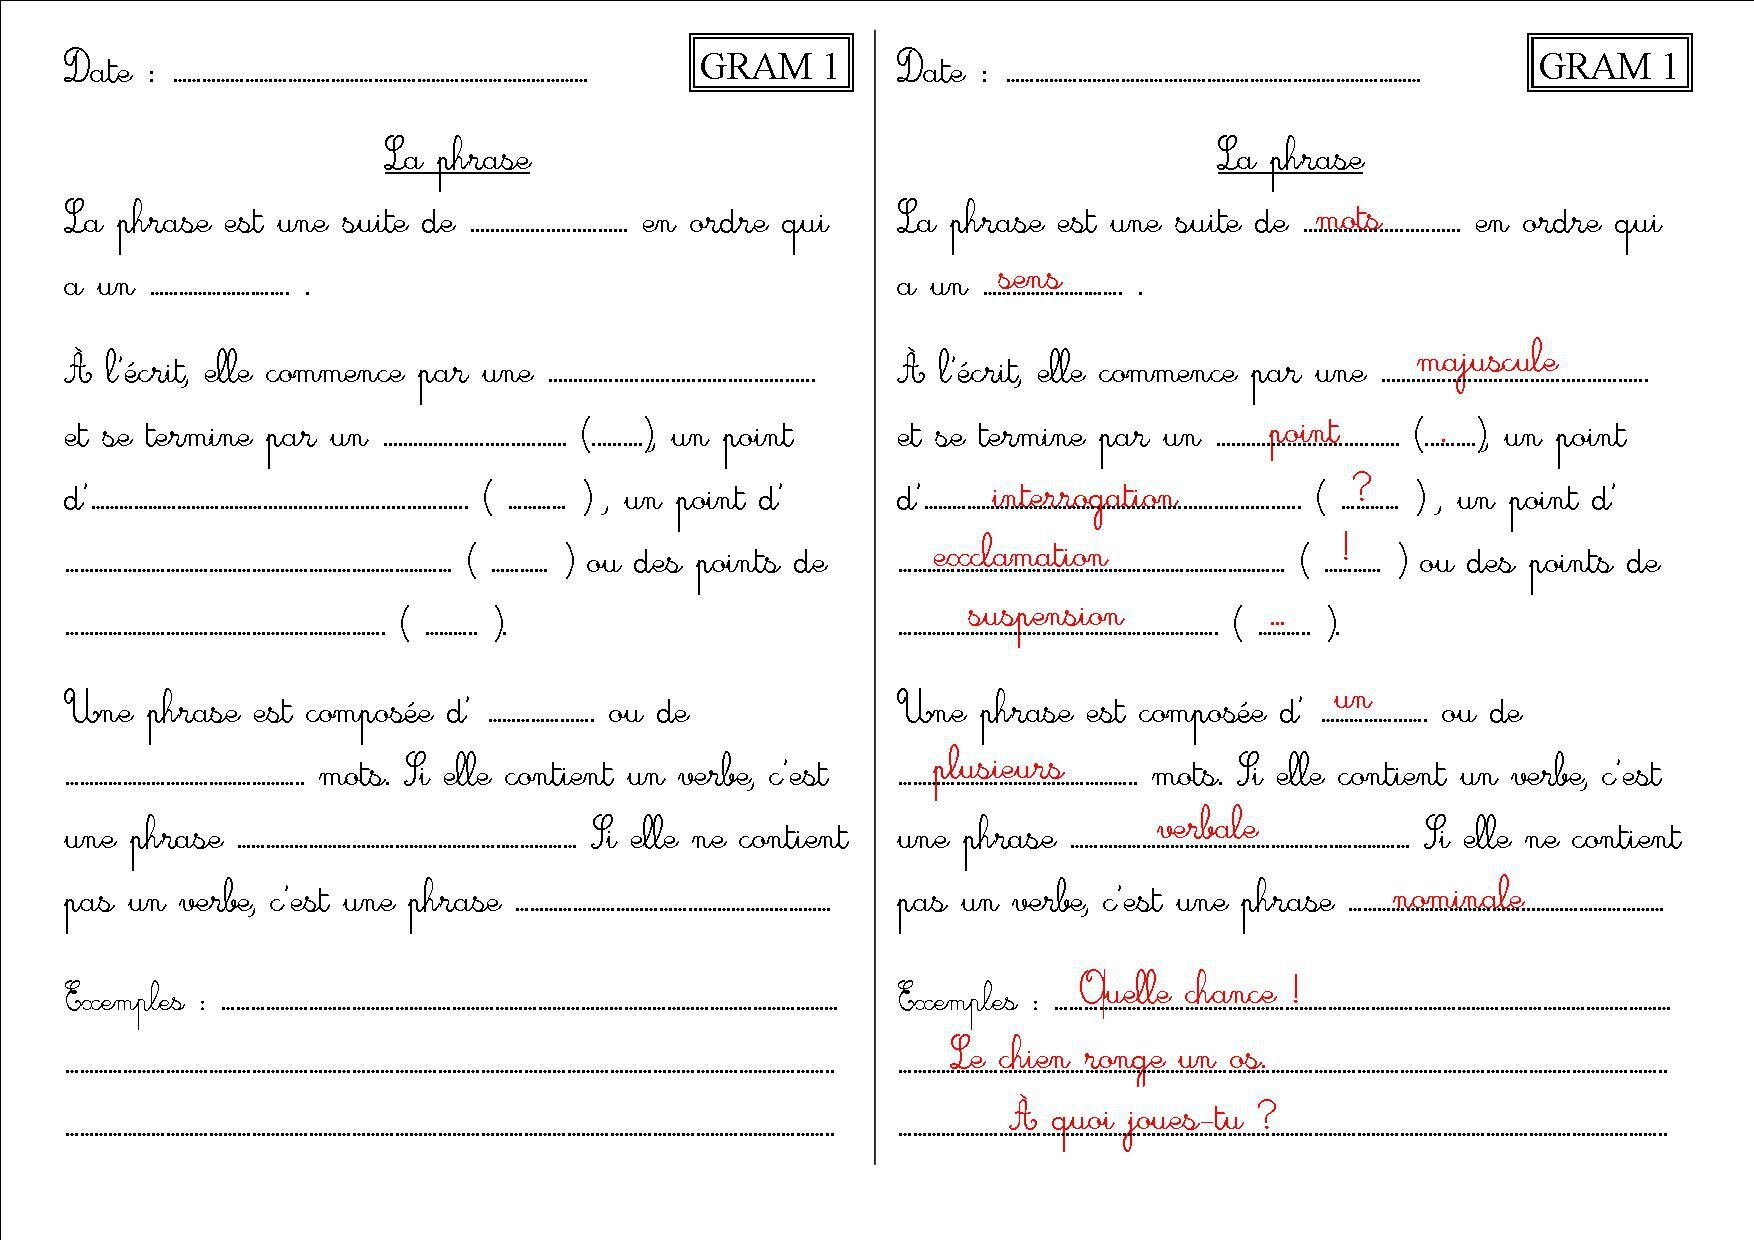 Date : ........................................
GRAM 1
La phrase
La phrase est une suite de .................... en ordre qui
a un .................... .
À l'écrit, elle commence par une ..............................
et se termine par un .................... (..........), un point
d'........................................ ( .......... ), un point d'
........................................ ( .......... ) ou des points de
........................................ ( .......... ).
Une phrase est composée d' .................... ou de
.............................. mots. Si elle contient un verbe, c'est
une phrase ........................................ Si elle ne contient
pas un verbe, c'est une phrase ........................................
Exemples : ........................................
........................................
........................................
Date : ........................................
GRAM 1
La phrase
La phrase est une suite de mots en ordre qui
a un sens .
À l'écrit, elle commence par une majuscule
et se termine par un point (.), un point
d'interrogation ( ? ), un point d'
exclamation ( ! ) ou des points de
suspension ( ... ).
Une phrase est composée d' un ou de
plusieurs mots. Si elle contient un verbe, c'est
une phrase verbale Si elle ne contient
pas un verbe, c'est une phrase nominale
Exemples : Quelle chance !
Le chien ronge un os.
À quoi joues-tu ?